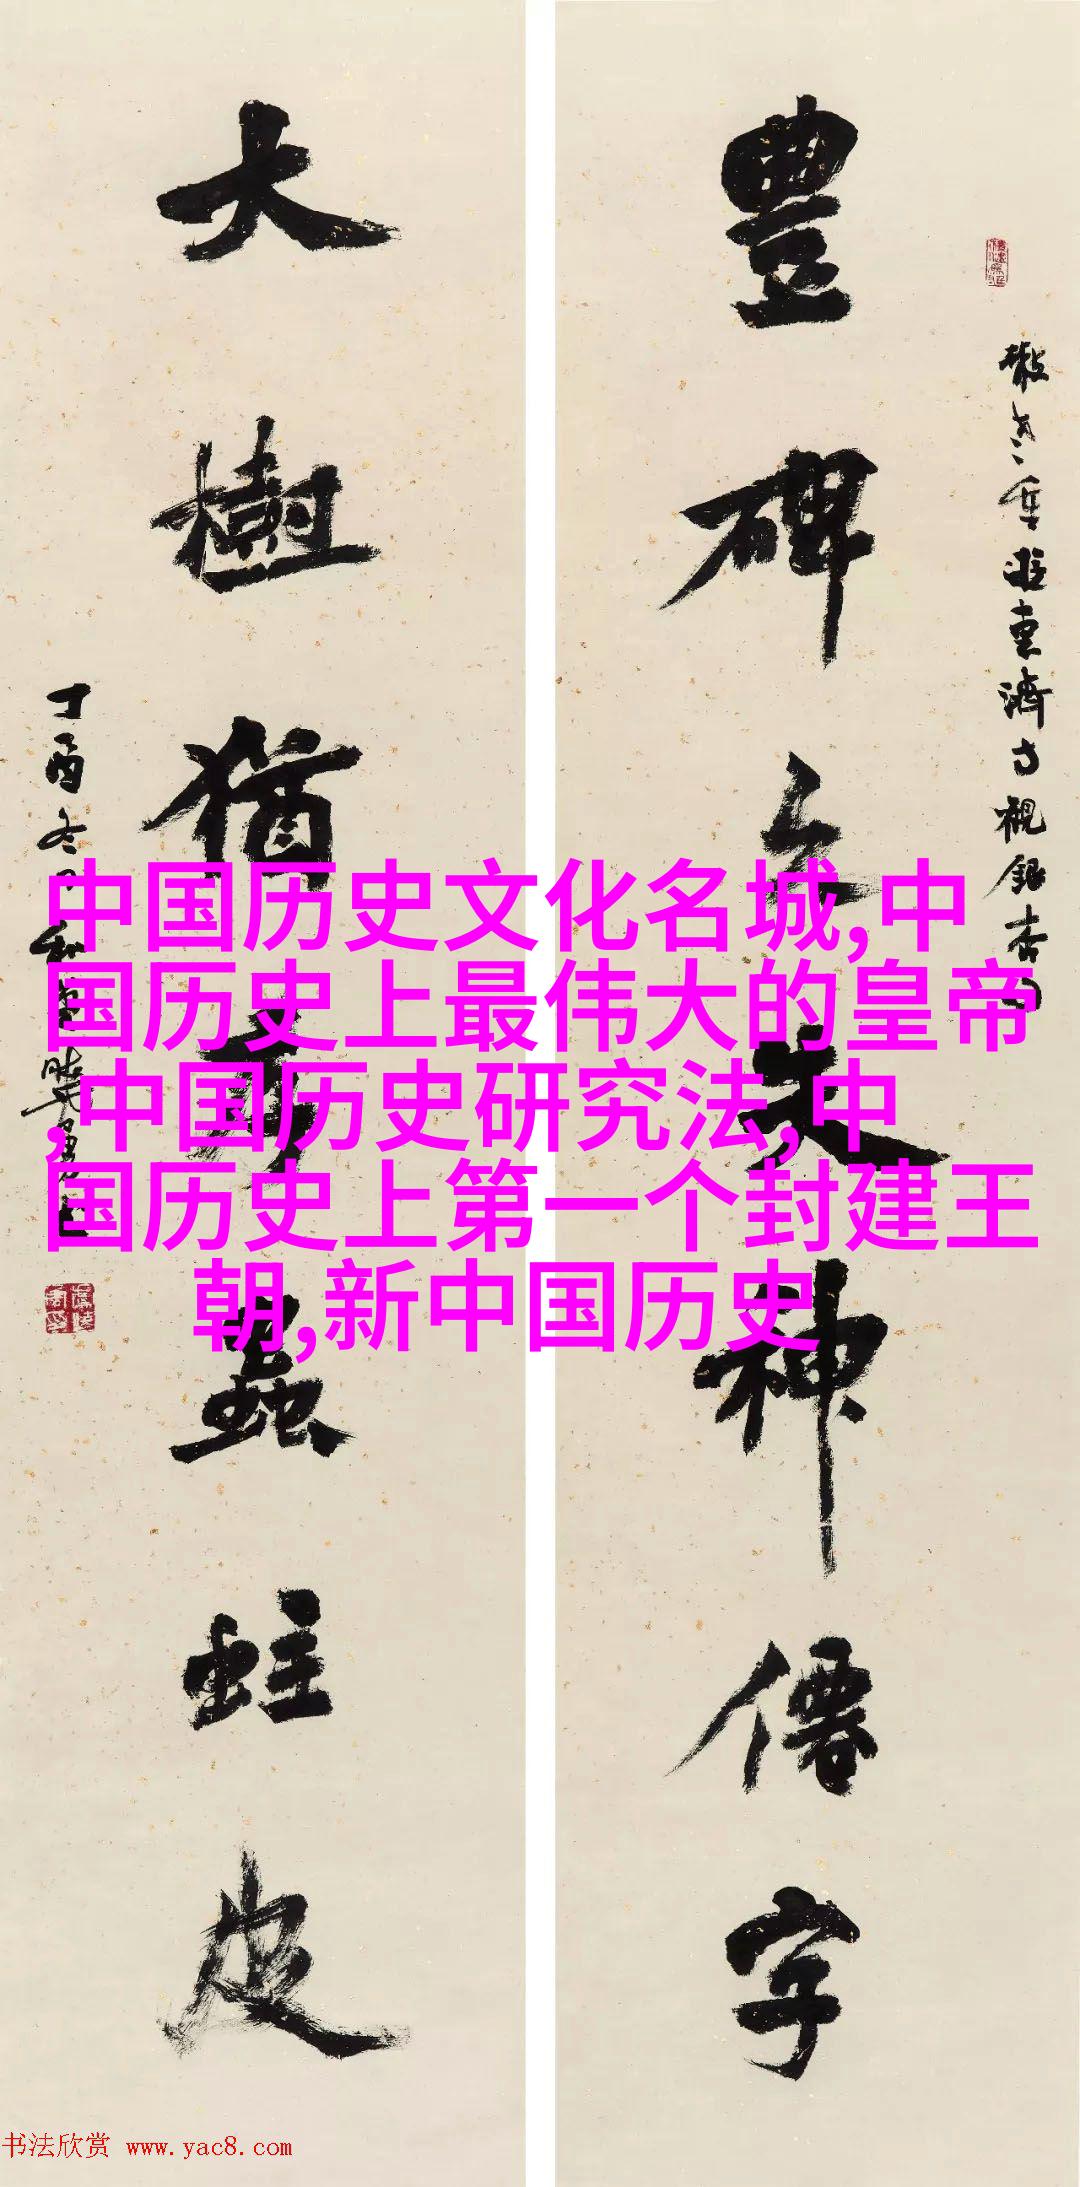 豐碑
失神僊字
大樹猶
蟲蛀皮
丁酉冬
中国历史文化名城,中
国历史上最伟大的皇帝
,中国历史研究法,中
国历史上第一个封建王
朝,新中国历史
书法欣赏 www.yac8.com